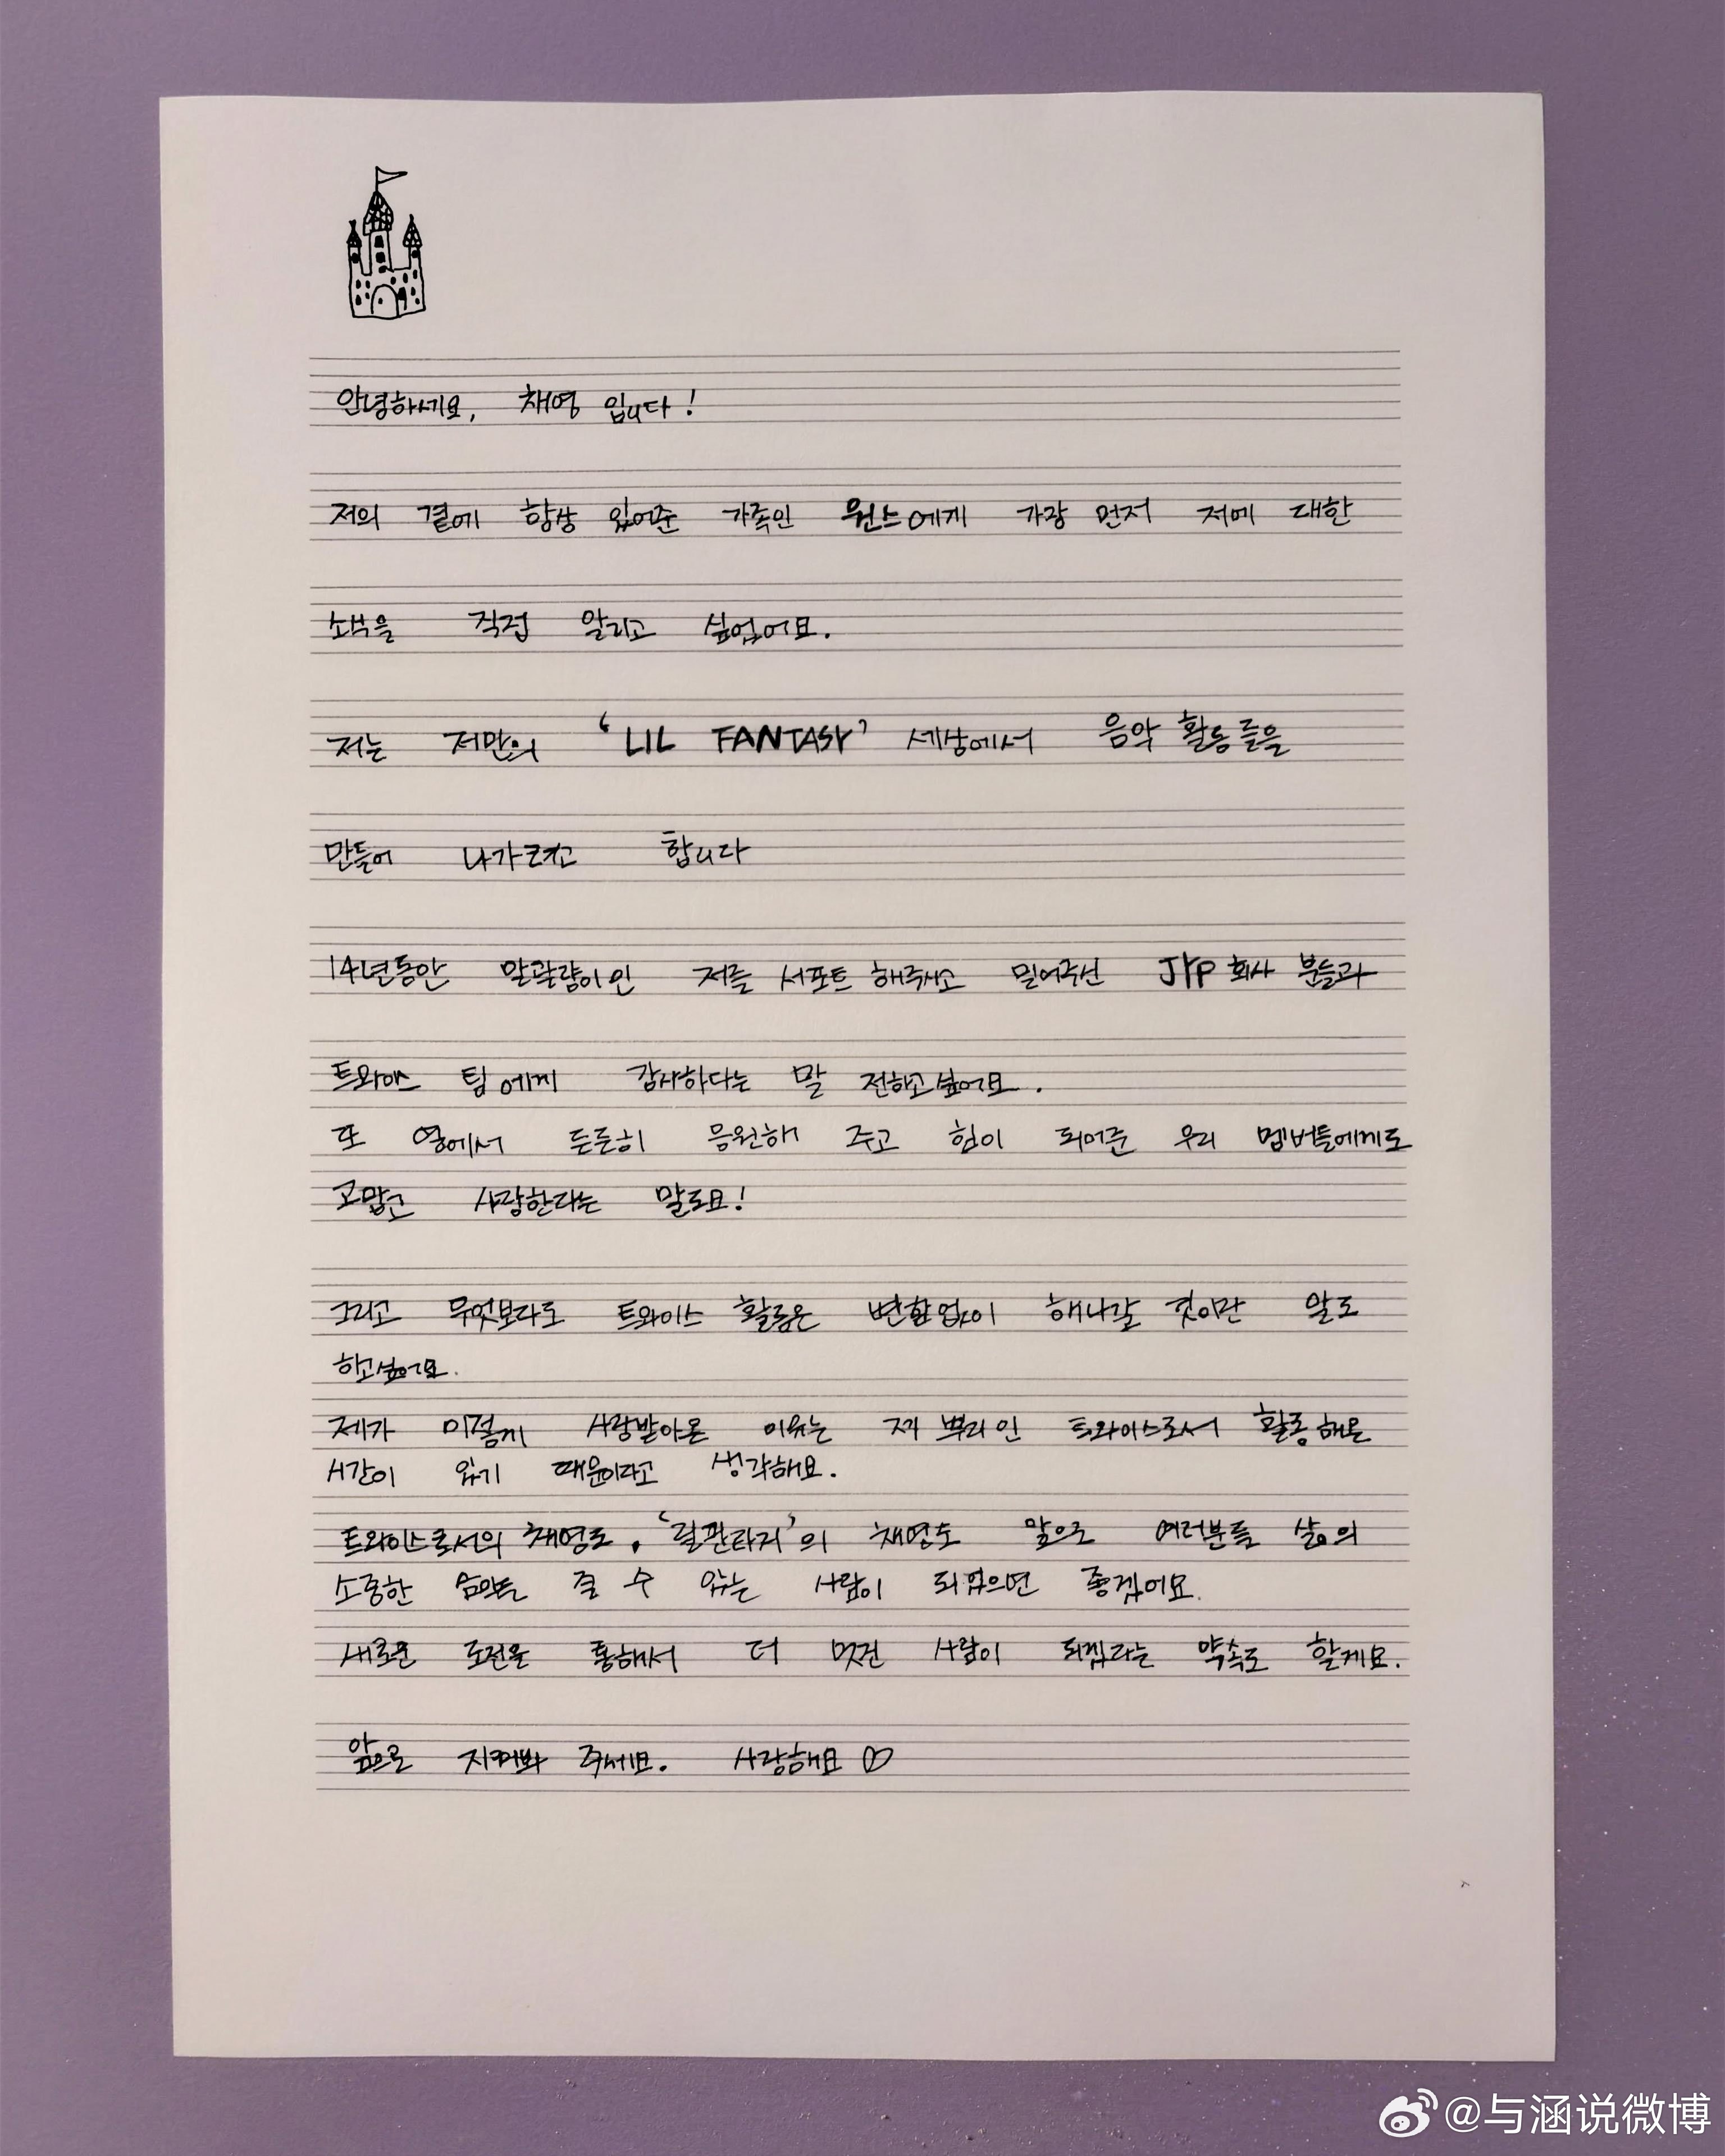 안녕하세요, 채영 입니다!
저의 곁에 항상 있어준 가족인 원스에게 가장 먼저 저에 대한
소식을 직접 알리고 싶었어요.
저는 저만의 'LIL FANTASY' 세상에서 음악 활동들을
만들어 나가려고 합니다
14년동안 말괄량이인 저를 서포트 해주시고 밀어주신 JYP 회사 분들과
트와이스 팀에게 감사하다는 말 전하고싶어요.
또 옆에서 든든히 응원해 주고 힘이 되어준 우리 멤버들에게도
고맙고 사랑한다는 말로요!
그리고 무엇보다도 트와이스 활동은 변함없이 해나갈 것이란 말도
하고싶어요.
제가 이렇게 사랑받아온 이유는 제 뿌리인 트와이스로서 활동해온
시간이 있기 때문이라고 생각해요.
트와이스로서의 채영도, '릴판타지'의 채영도 앞으로 여러분들 삶의
소중한 음악을 줄 수 있는 사람이 되었으면 좋겠어요.
새로운 도전을 통해서 더 멋진 사람이 되겠다는 약속도 할게요.
앞으로 지켜봐 주세요. 사랑해요 ♡
@与涵说微博